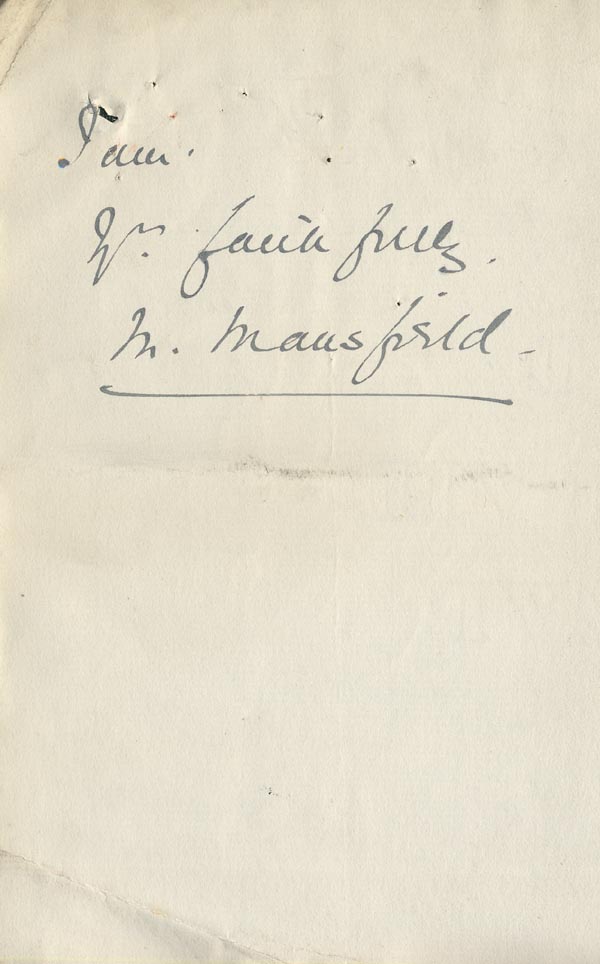 I am.
Yrs. faithfully.
M. Mansfield -